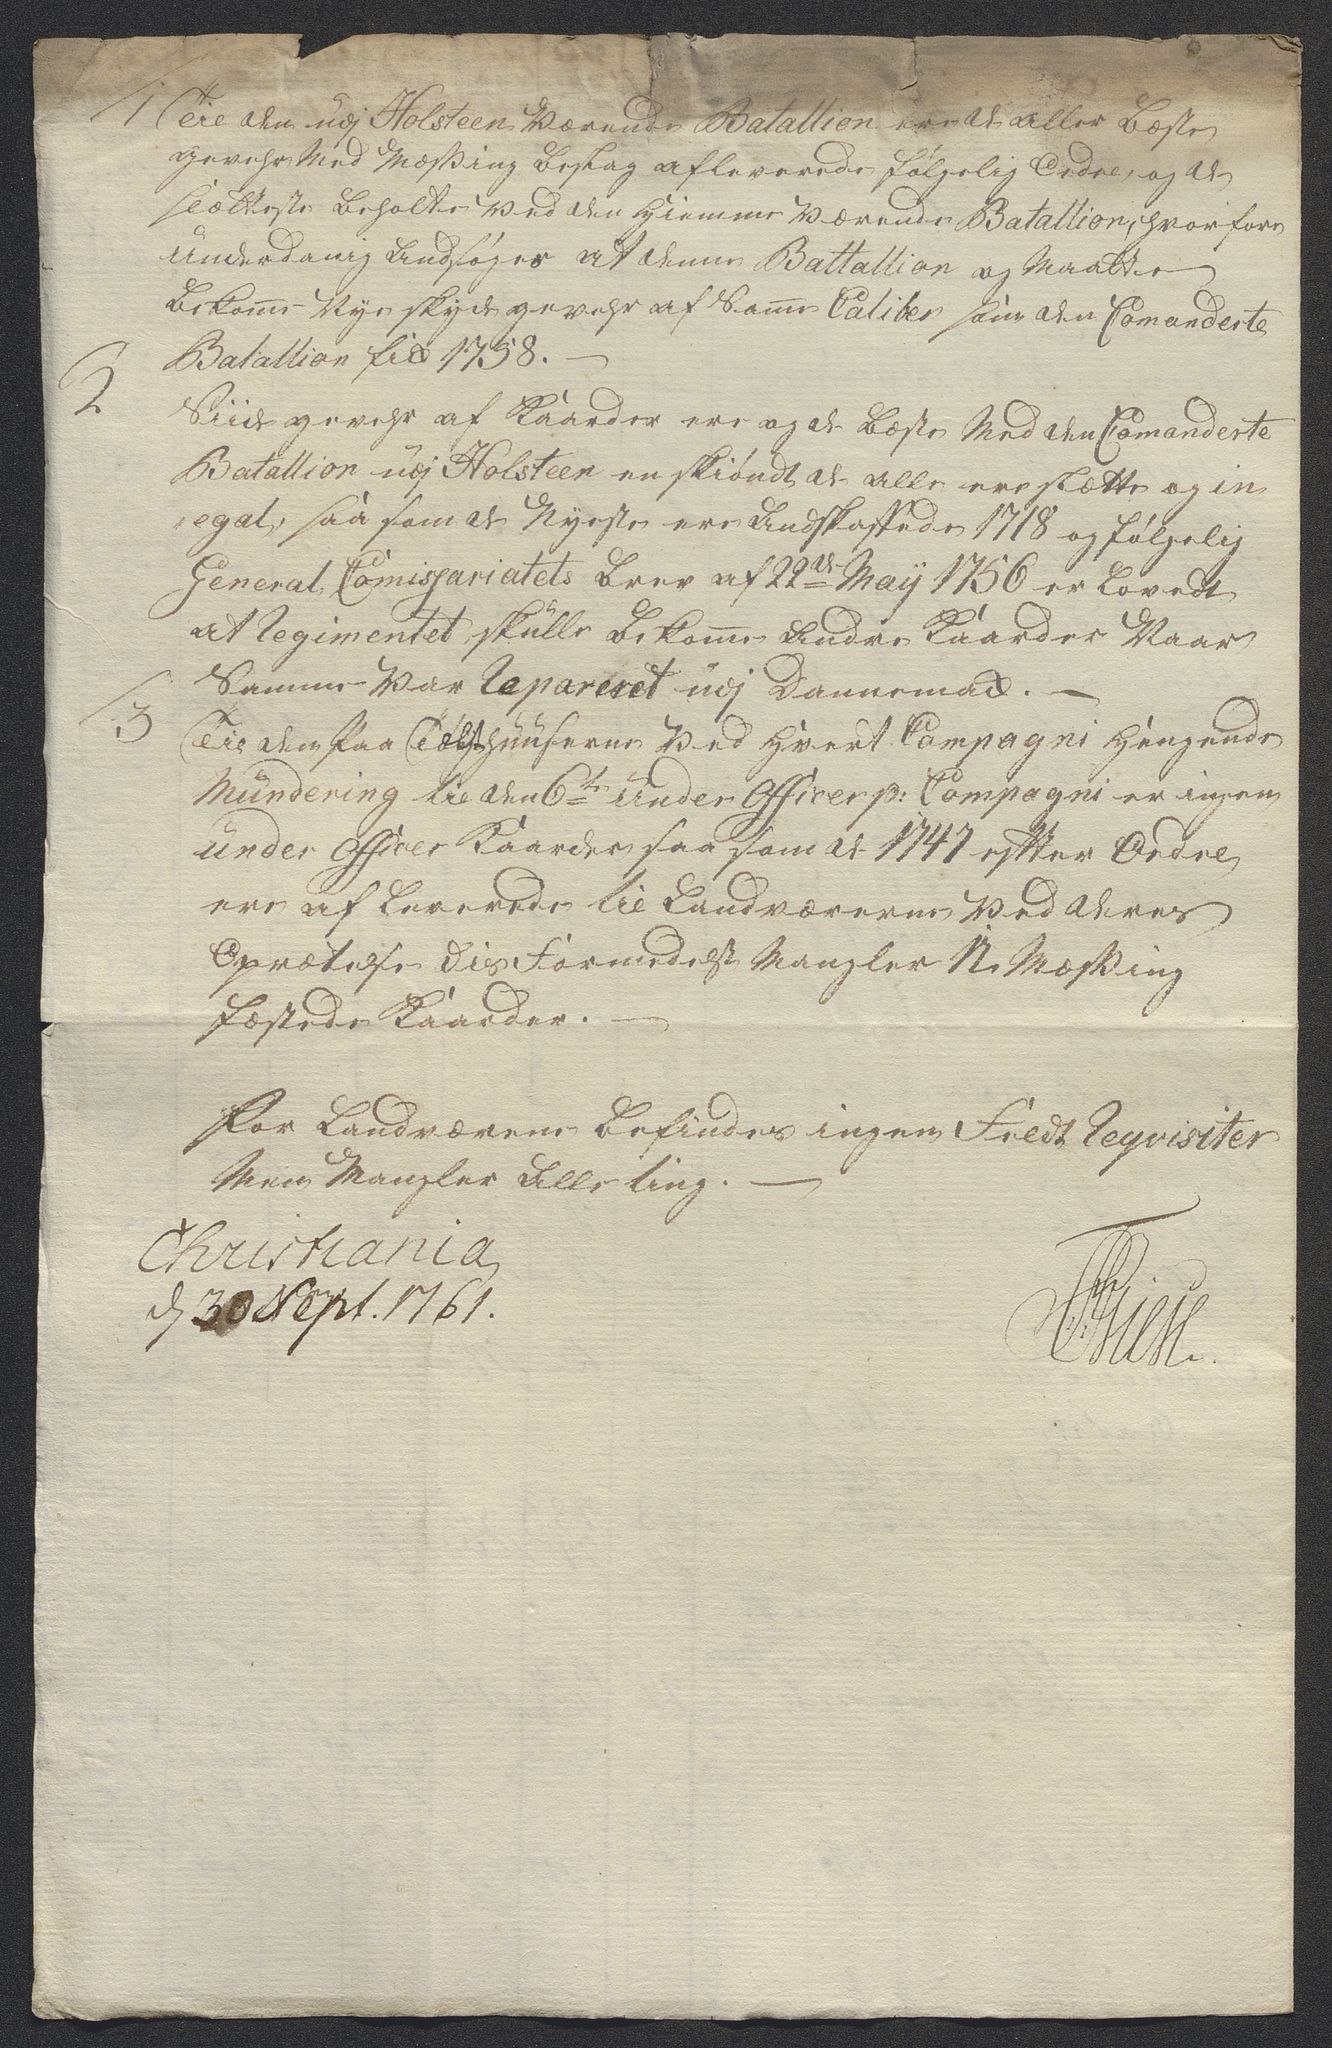 1 Till den udj Holsteen Værende Batallion ere de aller Beste
gevehr Med Messing Beslag afleverede følgelig Ordre, og de
slætteste Beholte Ved den Hiemme Værende Batallion, hvorfore
underdanig Andsøges at denne Battallion og Maatte
bekome Nye skyde gevehr af Same Caliber som den Comanderte
Batallion fik 1758. —
2 Siide gevehr af Kaarder ere og de Beste Med den Comanderte
Batallion udj Holsteen enskiøndt de alle ere slætte og in
egal, saa som de Nyeste ere Andskaffede 1718 og følgelig
General Comissariatets Brev af 22de May 1756 er Lovedt
at Regimentet skulle bekome Andre Kaarder Naar
Samme Var Repareret udj Dannemark. —
3 Till den paa Tølthuuserne Ved Hvert Compagni Hengende
Mundering til den 6te Under Officer p: Compagni er ingen
Under Officer Kaarder saa som de 1747 efter Ordre
ere afleverede til Landværerne Ved deres
Oprættelse dis Formedelst Mangler 12 Messing
fæstede Kaarder. —
For Landværene Befindes ingen Feldt Reqvisiter
Men Mangler Alle ting. —
Christiania
d 30 Sept. 1761.